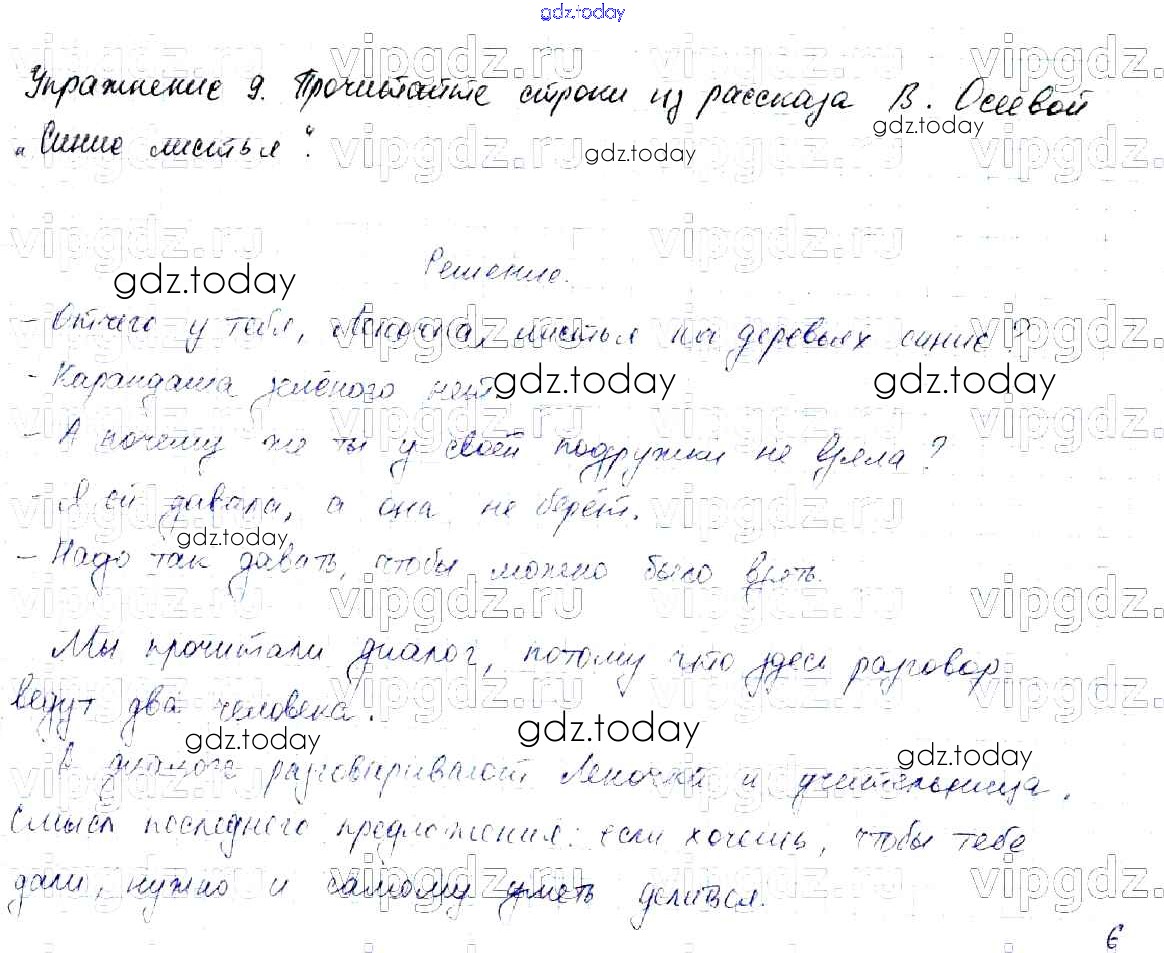 gdz.today
Упражнение 9. Прочитайте строки из рассказа В. Осеевой
„Синие листья“.
Решение.
- Отчего у тебя, Леночка, листья на деревьях синие?
- Карандаша зелёного нет.
- А почему же ты у своей подружки не взяла?
- Я ей давала, а она не берёт.
- Надо так давать, чтобы можно было взять.
Мы прочитали диалог, потому что здесь разговор
ведут два человека.
В диалоге разговаривают Леночка и учительница.
Смысл последнего предложения: если хочешь, чтобы тебе
дали, нужно и самому уметь делиться.
6